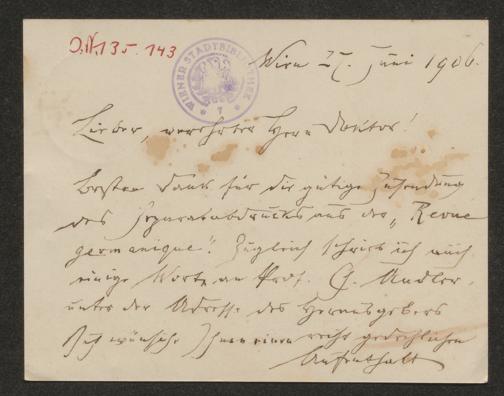 J.N. 135.143
WIENER STADTBIBLIOTHEK
Wien 27. Juni 1906.
Lieber, verehrter Herr Doktor!
Besten Dank für die gütige Zusendung
des Separatabdrucks aus der „Revue
germanique". Zugleich schrieb ich auch
einige Worte an Prof. Ch. Andler,
unter der Adresse des Herausgebers
Ich wünsche Ihnen einen recht gedeihlichen
Aufenthalt